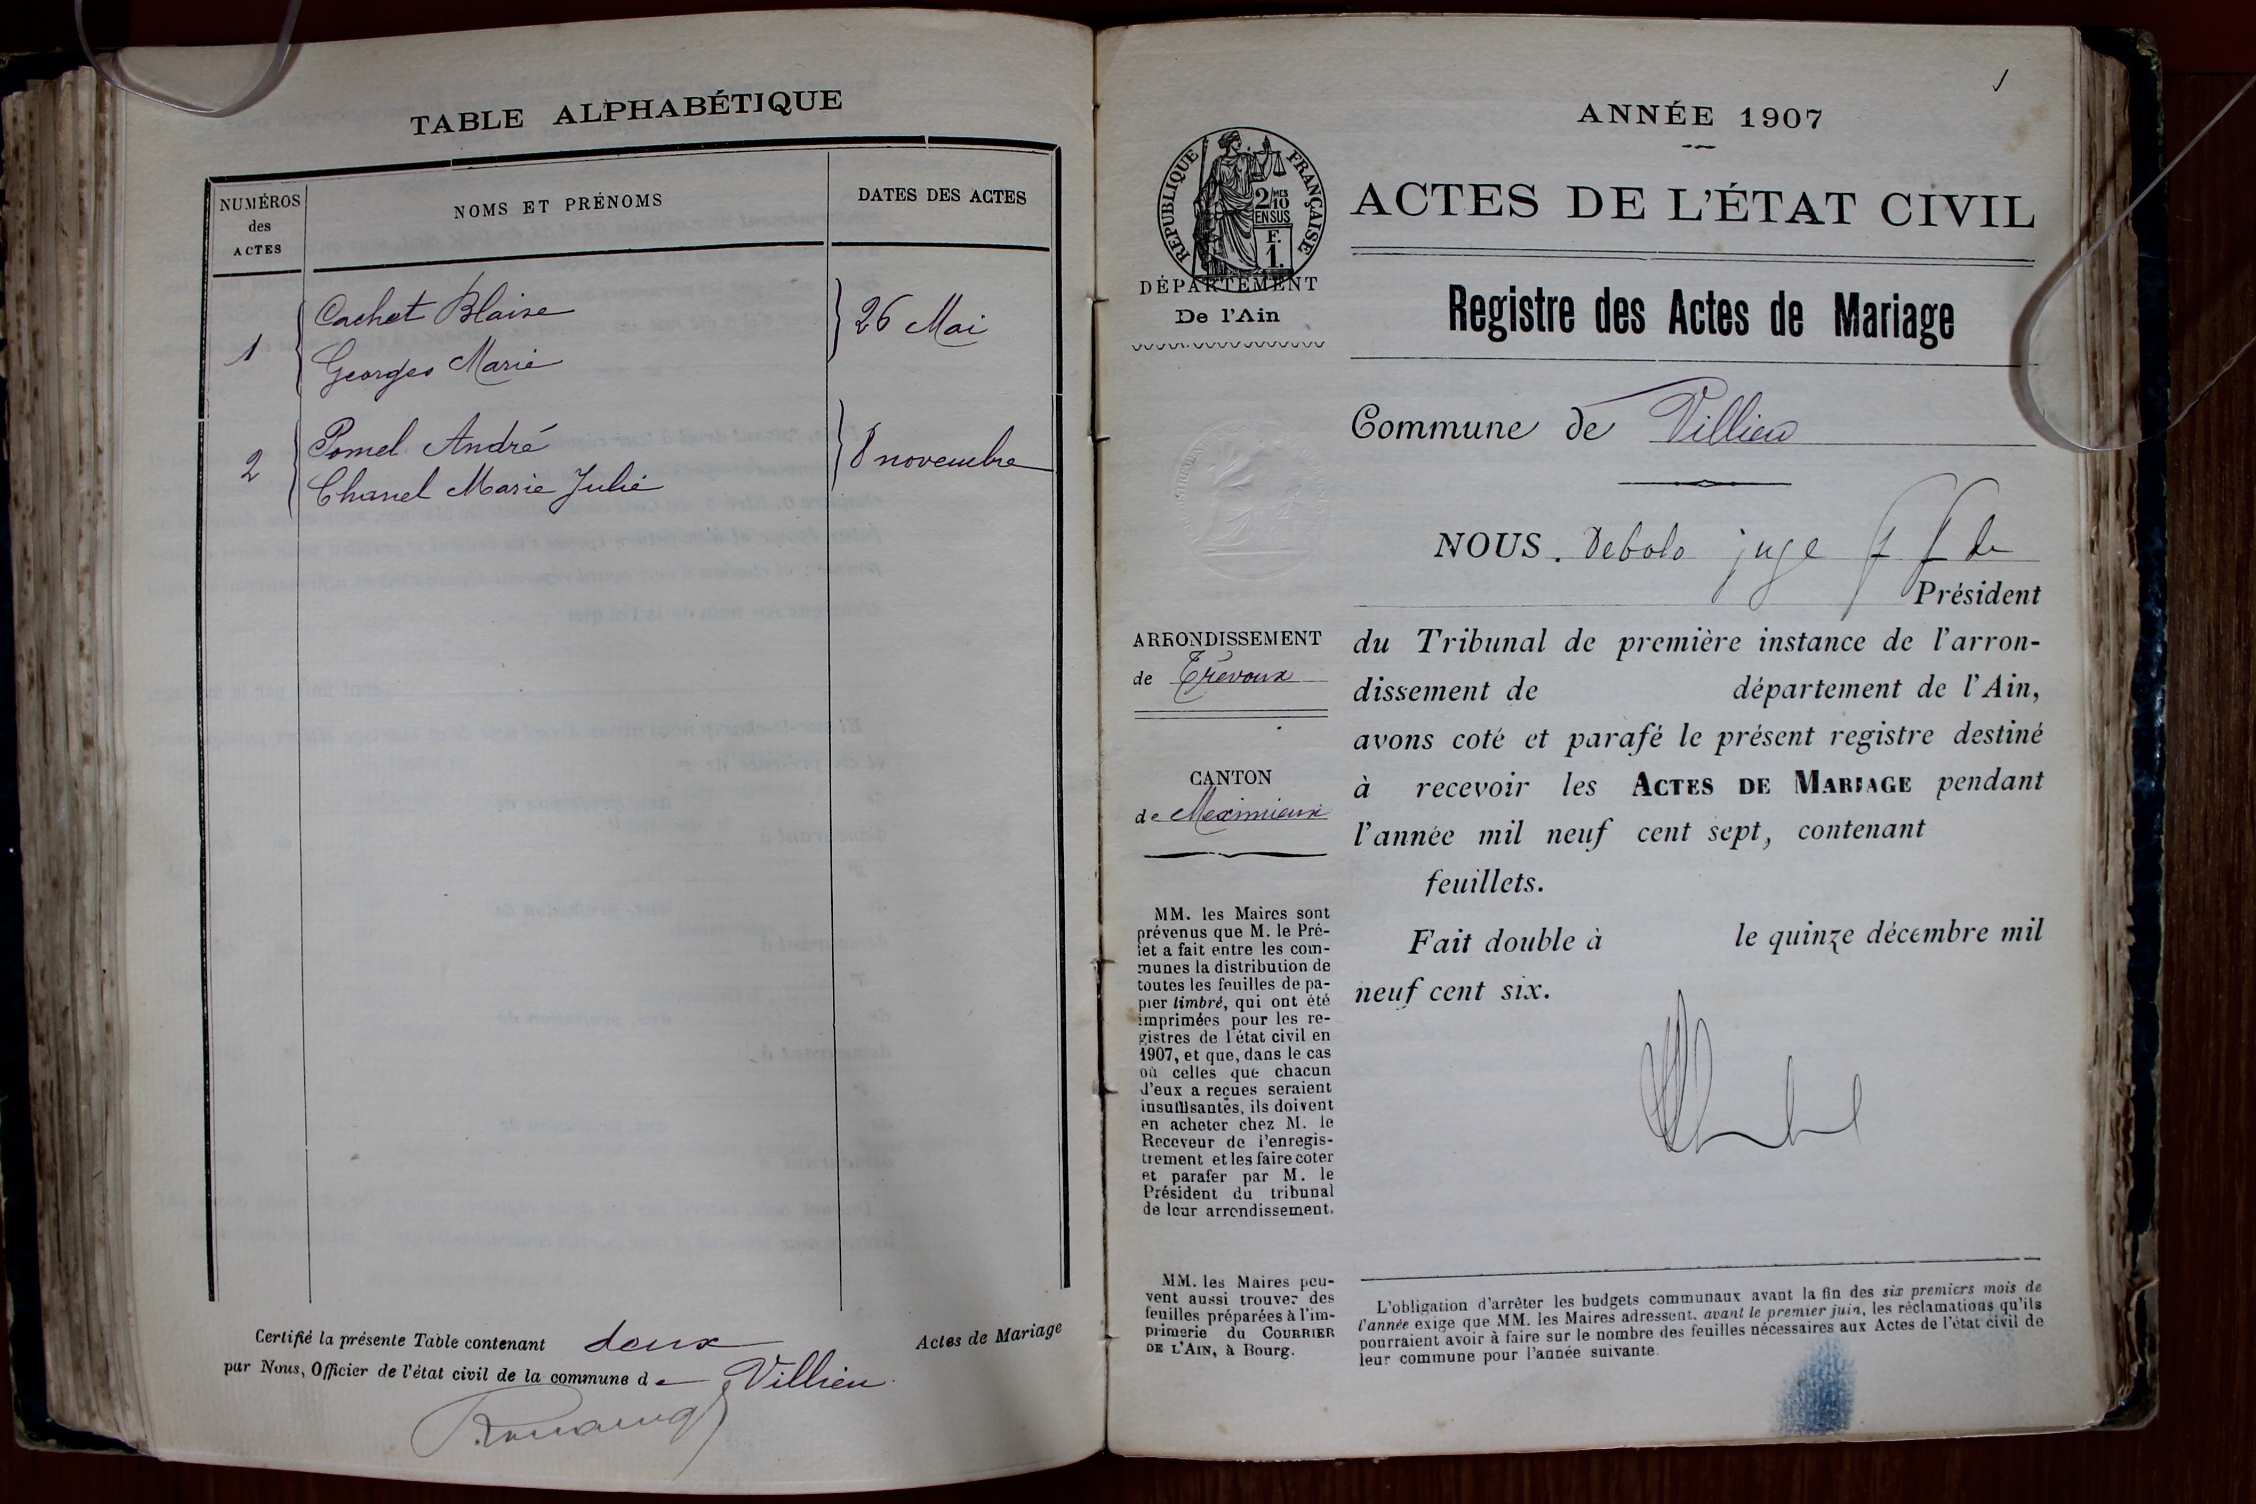 TABLE ALPHABÉTIQUE
NUMÉROS
des
ACTES
NOMS ET PRÉNOMS
DATES DES ACTES
1
Cachet Blaise
Georges Marie
26 Mai
2
Pomel André
Chanel Marie Julie
8 novembre
Certifié la présente Table contenant deux Actes de Mariage
par Nous, Officier de l'état civil de la commune de Villieu
1
ANNÉE 1907
RÉPUBLIQUE FRANÇAISE
2/10 MES
EN SUS
F.
1.
DÉPARTEMENT
De l'Ain
ACTES DE L'ÉTAT CIVIL
Registre des Actes de Mariage
Commune de Villieu
NOUS. Debolo juge f f de
Président
du Tribunal de première instance de l'arron-
dissement de département de l'Ain,
avons coté et parafé le présent registre destiné
à recevoir les ACTES DE MARIAGE pendant
l'année mil neuf cent sept, contenant
feuillets.
Fait double à le quinze décembre mil
neuf cent six.
ARRONDISSEMENT
de Trévoux
CANTON
de Meximieux
MM. les Maires sont
prévenus que M. le Pré-
fet a fait entre les com-
munes la distribution de
toutes les feuilles de pa-
pier timbré, qui ont été
imprimées pour les re-
gistres de l'état civil en
1907, et que, dans le cas
où celles que chacun
d'eux a reçues seraient
insuffisantes, ils doivent
en acheter chez M. le
Receveur de l'enregis-
trement et les faire coter
et parafer par M. le
Président du tribunal
de leur arrondissement.
MM. les Maires peu-
vent aussi trouver des
feuilles préparées à l'im-
primerie du COURRIER
DE L'AIN, à Bourg.
L'obligation d'arrêter les budgets communaux avant la fin des six premiers mois de
l'année exige que MM. les Maires adressent, avant le premier juin, les réclamations qu'ils
pourraient avoir à faire sur le nombre des feuilles nécessaires aux Actes de l'état civil de
leur commune pour l'année suivante.